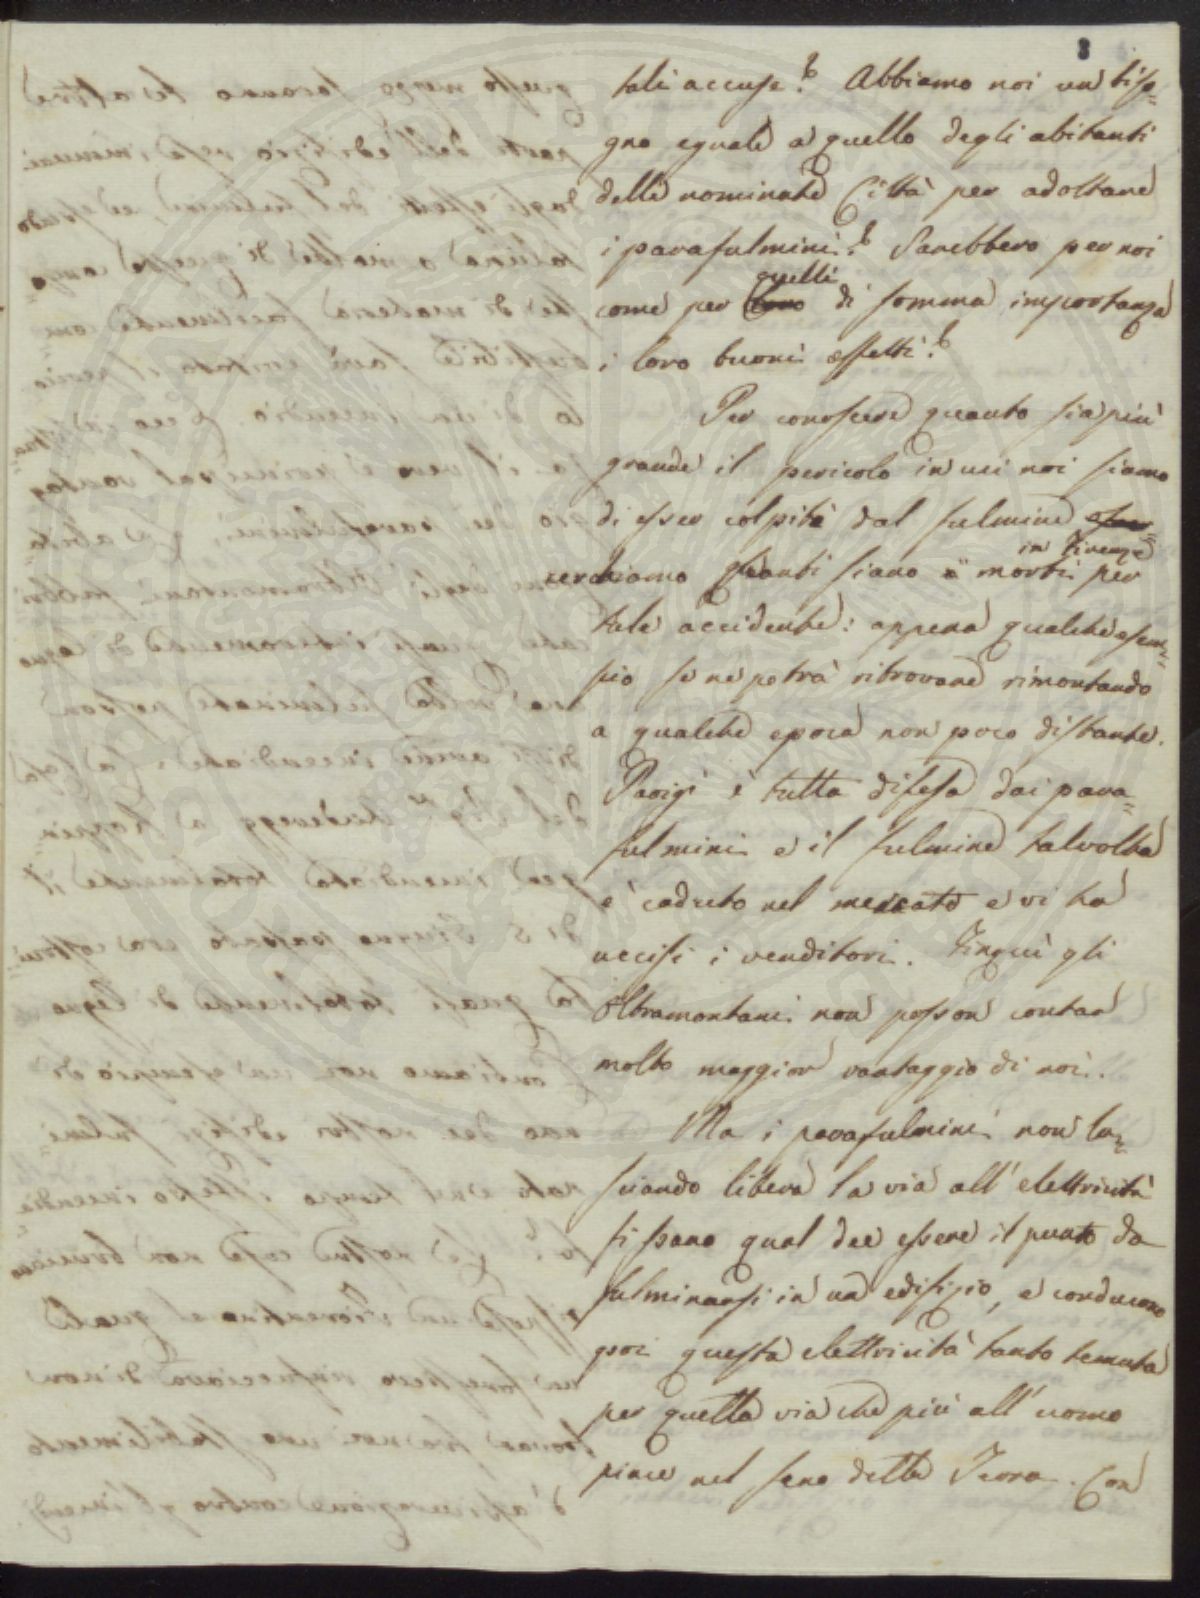 8
tali accuse? Abbiamo noi un biso=
gno eguale a quello degli abitanti
delle nominate Città per adottare
i parafulmini? Sarebbero per noi
quelli
come per loro di somma importanza
i loro buoni effetti?
Per conoscere quanto sia più
grande il pericolo in cui noi siamo
di esser colpiti dal fulmine
in Firenze
cerchiamo quanti siano i morti per
tale accidente: appena qualche esem=
pio se ne potrà ritrovare rimontando
a qualche epoca non poco distante.
Parigi è tutta difesa dai para=
fulmini e il fulmine talvolta
è caduto nel mercato e vi ha
uccisi i venditori. Finquì gli
Oltramontani non posson contar
molto maggior vantaggio di noi.
Ma i parafulmini non la=
sciando libera la via all'elettricità
fissano qual dee essere il punto da
fulminarsi in un edifizio, e conducono
poi questa elettricità tanto temuta
per quella via che più all'uomo
piace nel seno della Terra. Con